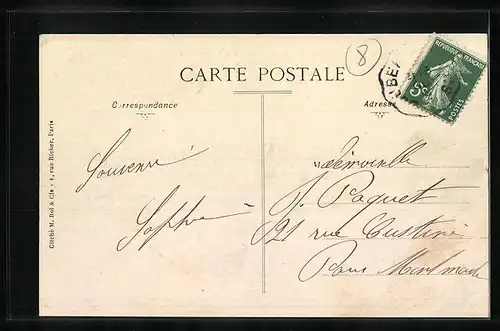 8
CARTE POSTALE
Correspondance
Adresse
REPUBLIQUE FRANÇAISE
5c
POSTES
Souvenir
Sophie
Mademoiselle
J. Paquet
21 rue Custine
Paris Montmartre
Cliché M. Bol & Cie - 4, rue Richer, Paris